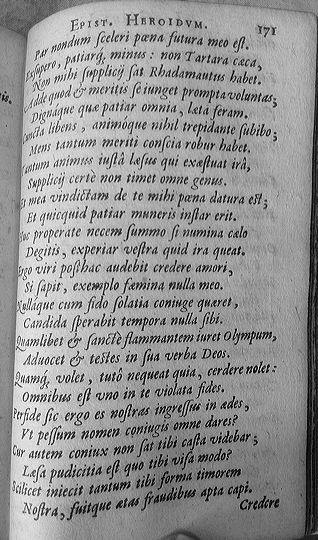 EPIST. HEROIDVM. 171
Par nondum sceleri pœna futura meo est.
Exsupero, patiarq́, minus: non Tartara cæca,
Non mihi supplicij sat Rhadamautus habet.
Adde quod & meritis se iunget prompta voluntas;
Dignáque quæ patiar omnia, læta feram.
Cuncta libens, animóque nihil trepidante subibo;
Mens tantum meriti conscia robur habet.
Tantum animus iustâ læsus qui exæstuat irâ,
Supplicij certè non timet omne genus.
Et mea vindictam de te mihi pœna datura est;
Et quicquid patiar muneris instar erit.
Huc properate necem summo si numina cælo
Degitis, experiar vestra quid ira queat.
Ergo viri posthac audebit credere amori,
Si sapit, exemplo fæmina nulla meo.
Nulláque cum fido solatia coniuge quæret,
Candida sperabit tempora nulla sibi.
Quamlibet & sanctè flammantem iuret Olympum,
Aduocet & testes in sua verba Deos.
Quamq́, volet, tutò nequeat quia, cerdere nolet:
Omnibus est vno in te violata fides.
Perfide sic ergo es nostras ingressus in ædes,
Vt pessum nomen coniugis omne dares?
Cur autem coniux non sat tibi casta videbar;
Læsa pudicitia est quo tibi visa modo?
Scilicet iniecit tantum tibi forma timorem
Nostra, fuitque ætas fraudibus apta capi.
Credere